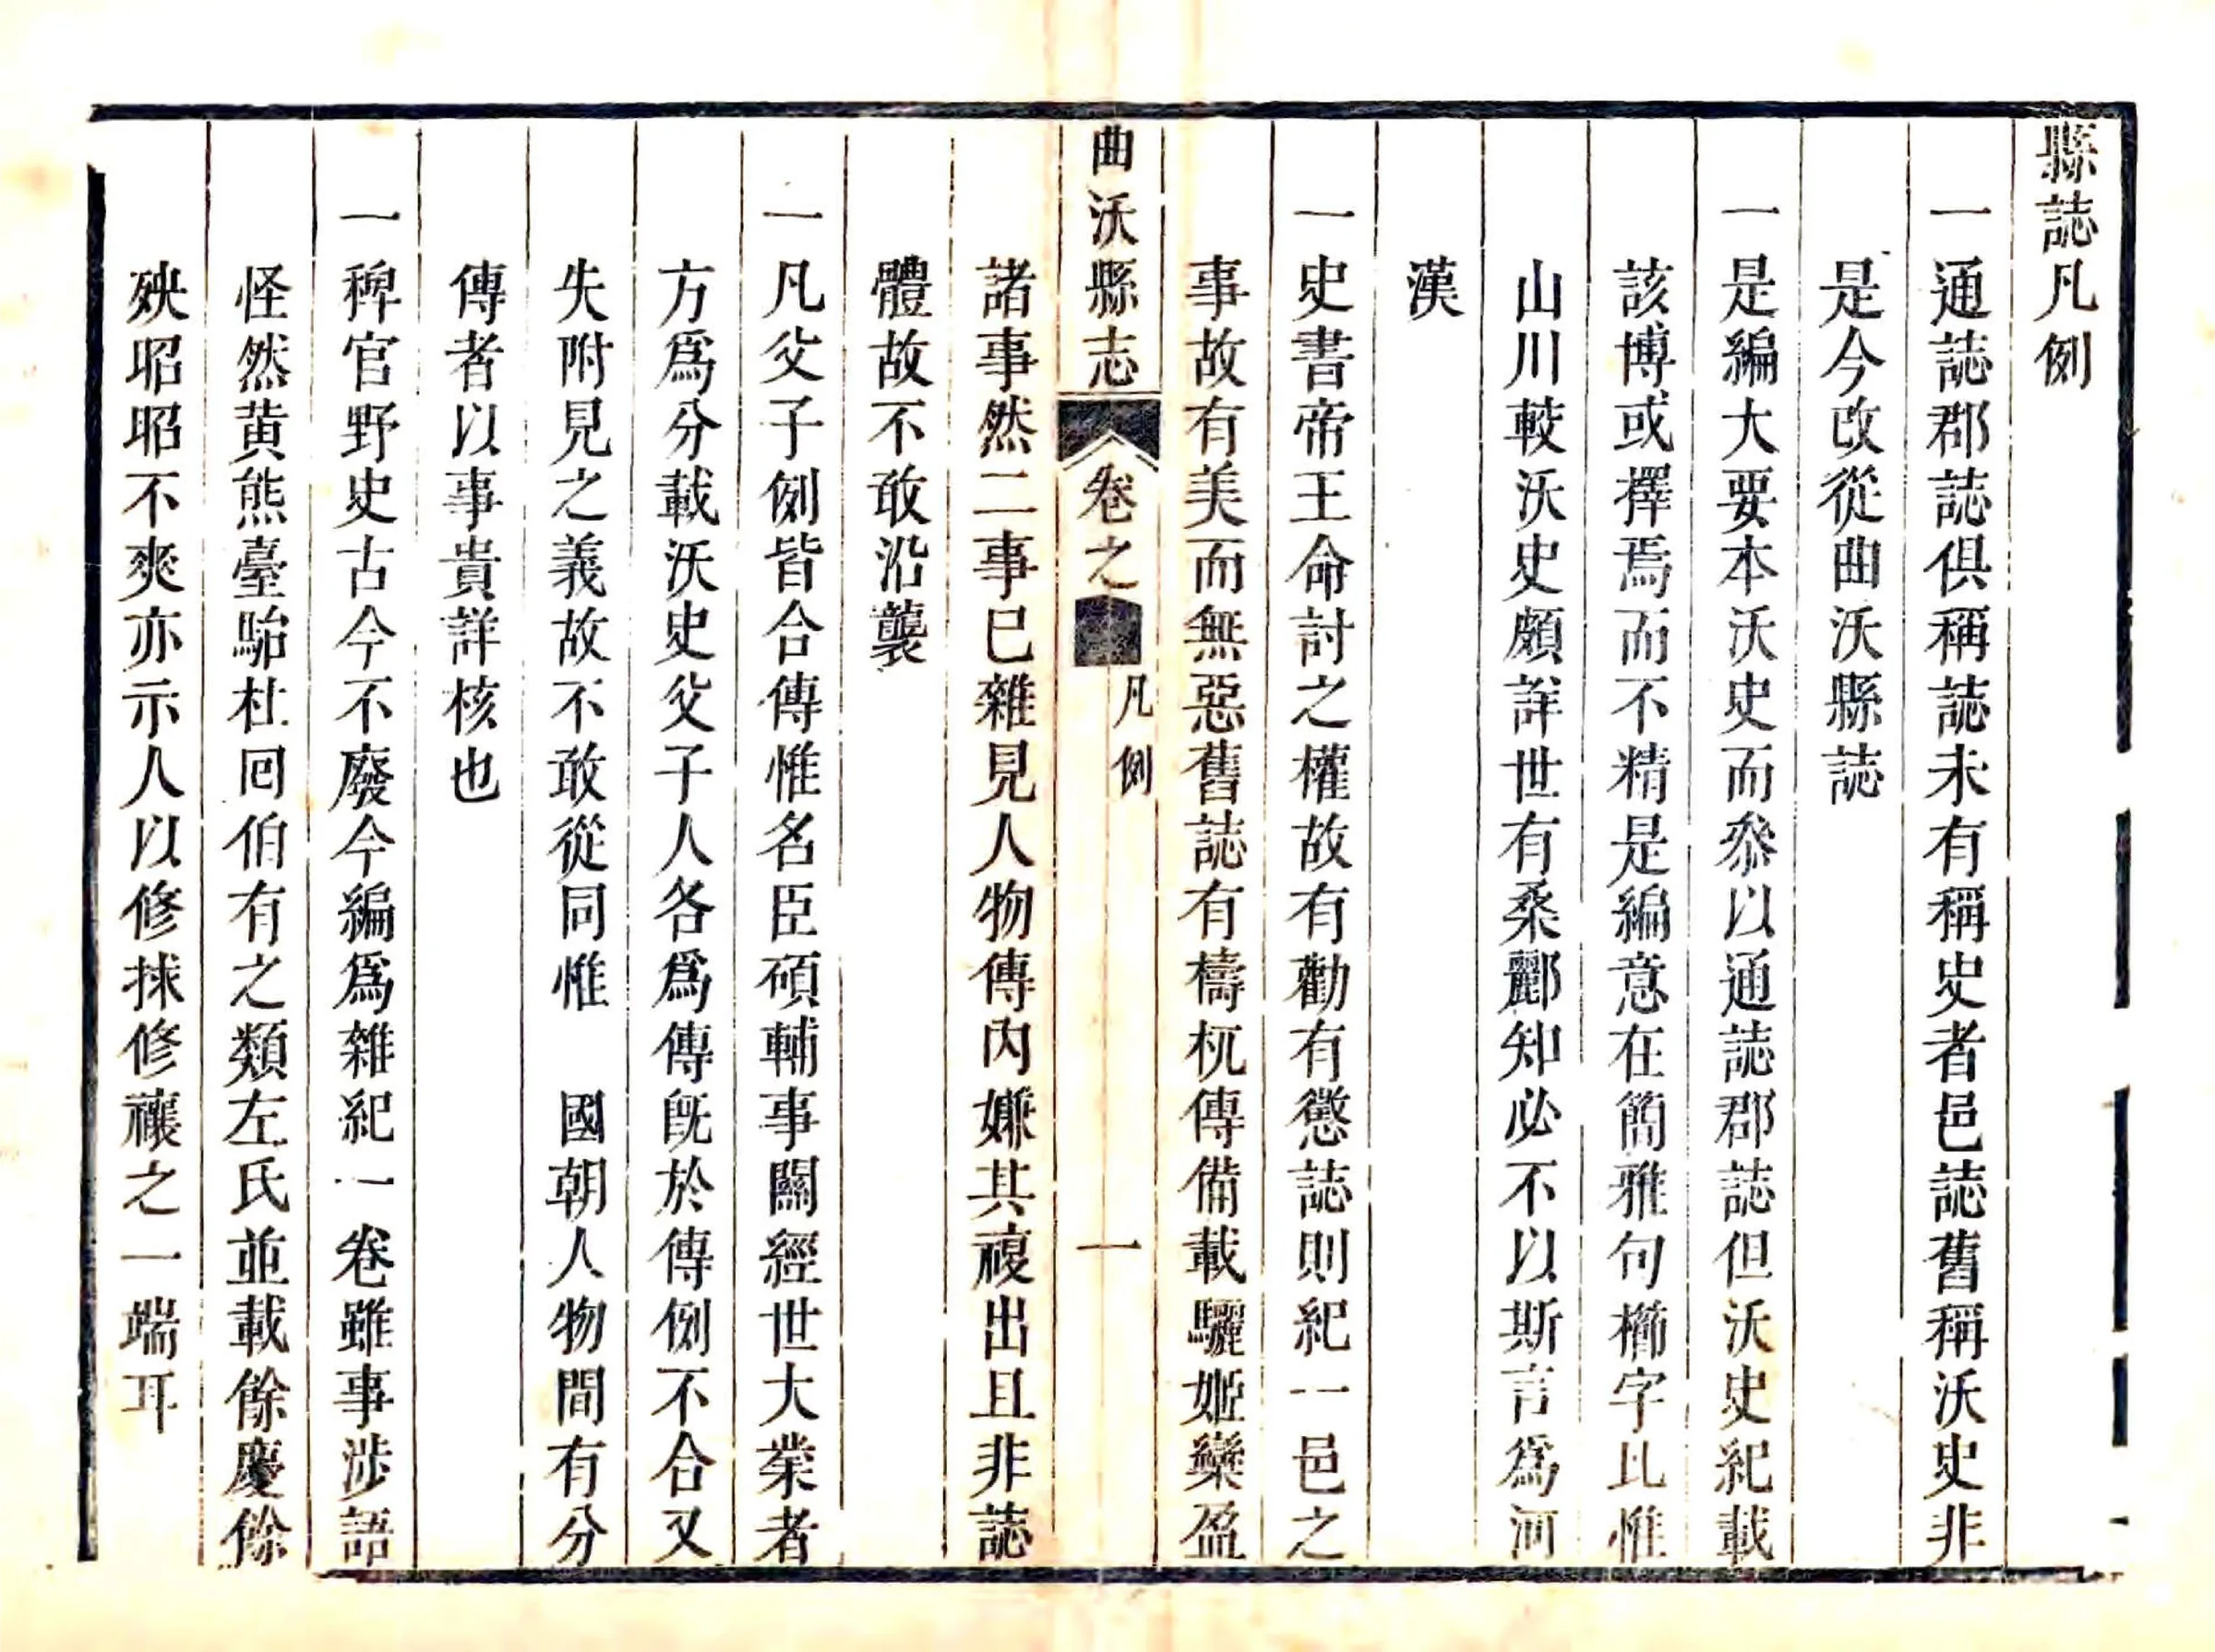 縣誌凡例
一通誌郡誌俱稱誌未有稱史者邑誌舊稱沃史非
是今改從曲沃縣誌
一是編大要本沃史而叅以通誌郡誌但沃史紀載
該博或擇焉而不精是編意在簡雅句櫛字比惟
山川較沃史頗詳世有桑酈知必不以斯言爲河
漢
一史書帝王命討之權故有勸有懲誌則紀一邑之
事故有美而無惡舊誌有檮杌傳備載驪姬欒盈
曲沃縣志
卷之
凡例
一
諸事然二事已雜見人物傳內嫌其複出且非誌
體故不敢沿襲
一凡父子例皆合傳惟名臣碩輔事關經世大業者
方爲分載沃史父子人各爲傳旣於傳例不合又
失附見之義故不敢從同惟　國朝人物間有分
傳者以事貴詳核也
一稗官野史古今不廢今編爲雜紀一卷雖事涉語
怪然黃熊臺駘杜回伯有之類左氏並載餘慶餘
殃昭昭不爽亦示人以修捄修禳之一端耳